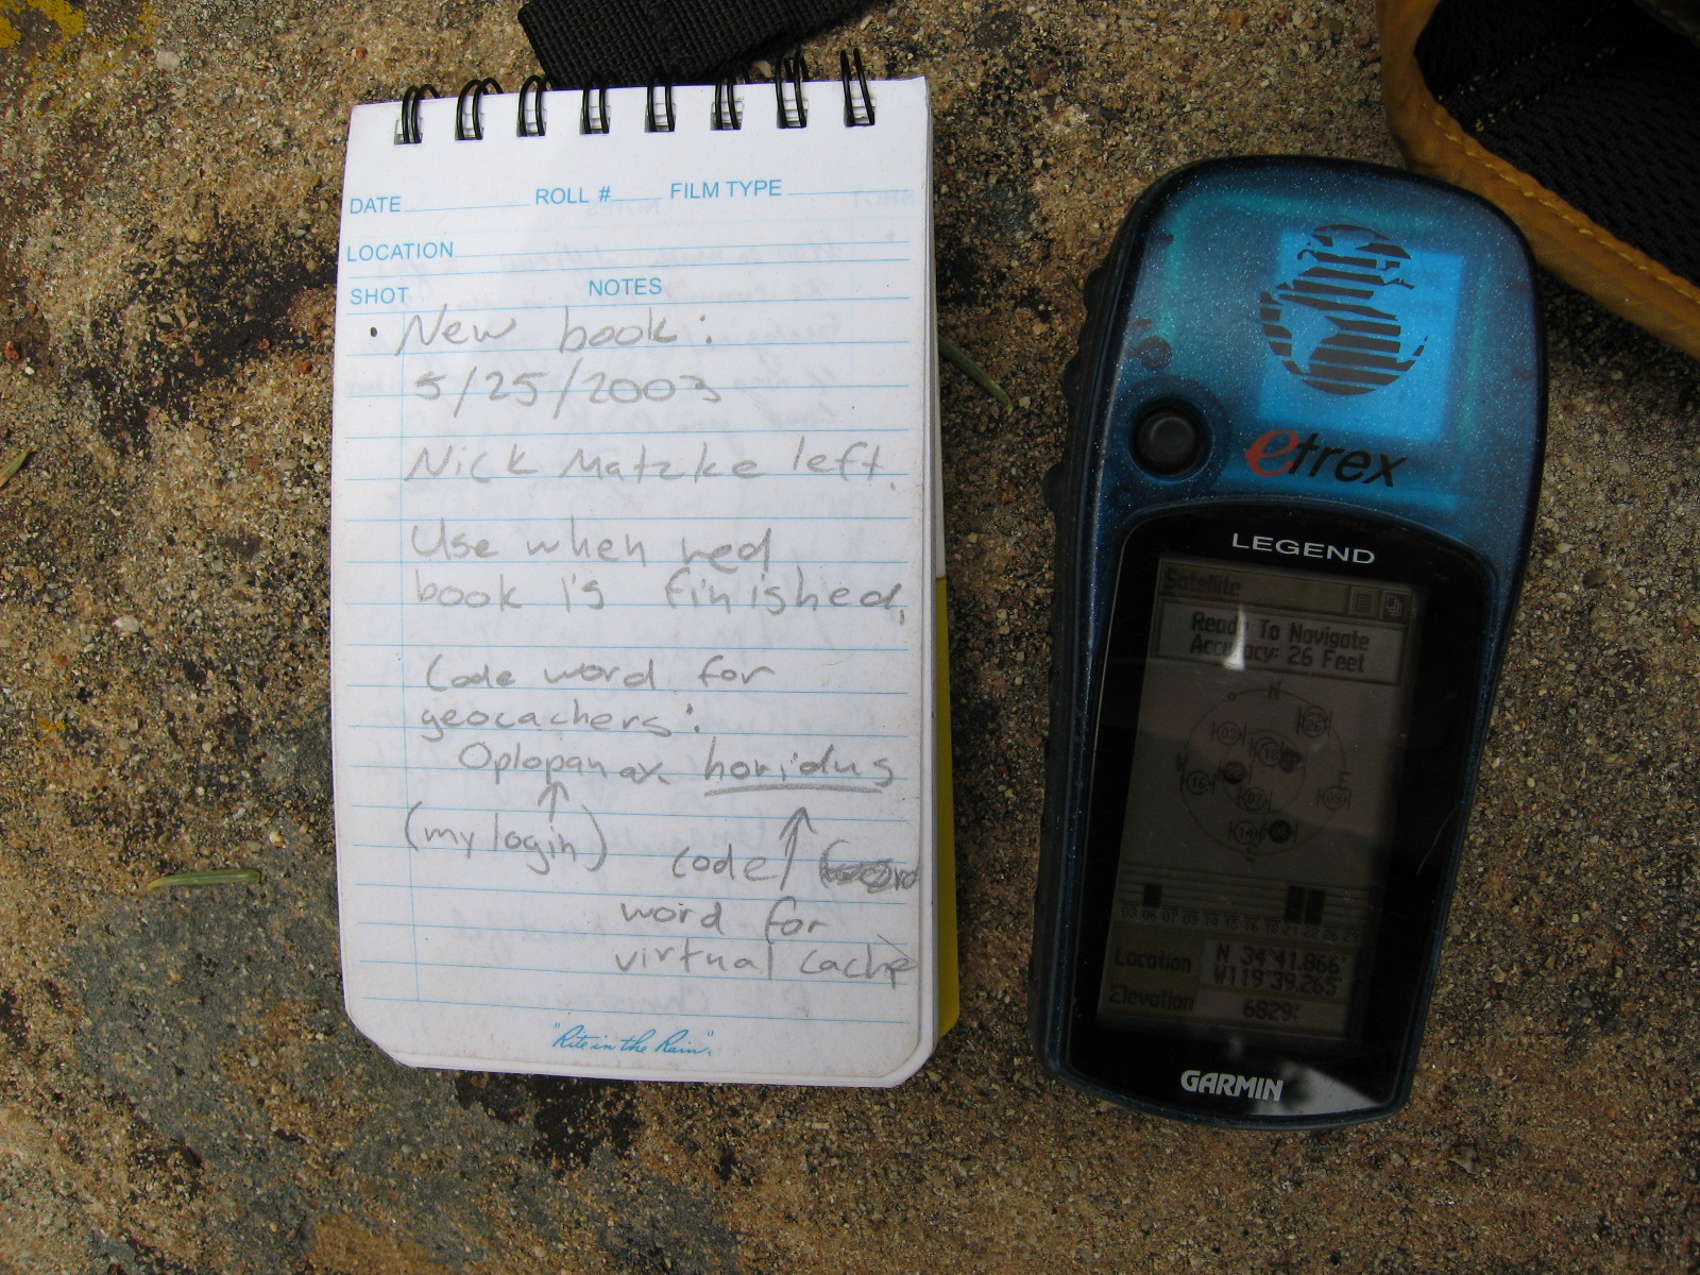 DATE ROLL # FILM TYPE
LOCATION
SHOT NOTES
• New book:
5/25/2003
Nick Matzke left.
Use when red
book is finished.
Code word for
geocachers:
Oplopanax horidus
(my login) code
word for
virtual cache
"Rite in the Rain"
etrex
LEGEND
Satellite
Ready To Navigate
Accuracy: 26 Feet
N
Location N 34°41.866'
W119°39.265'
Elevation 6829
GARMIN